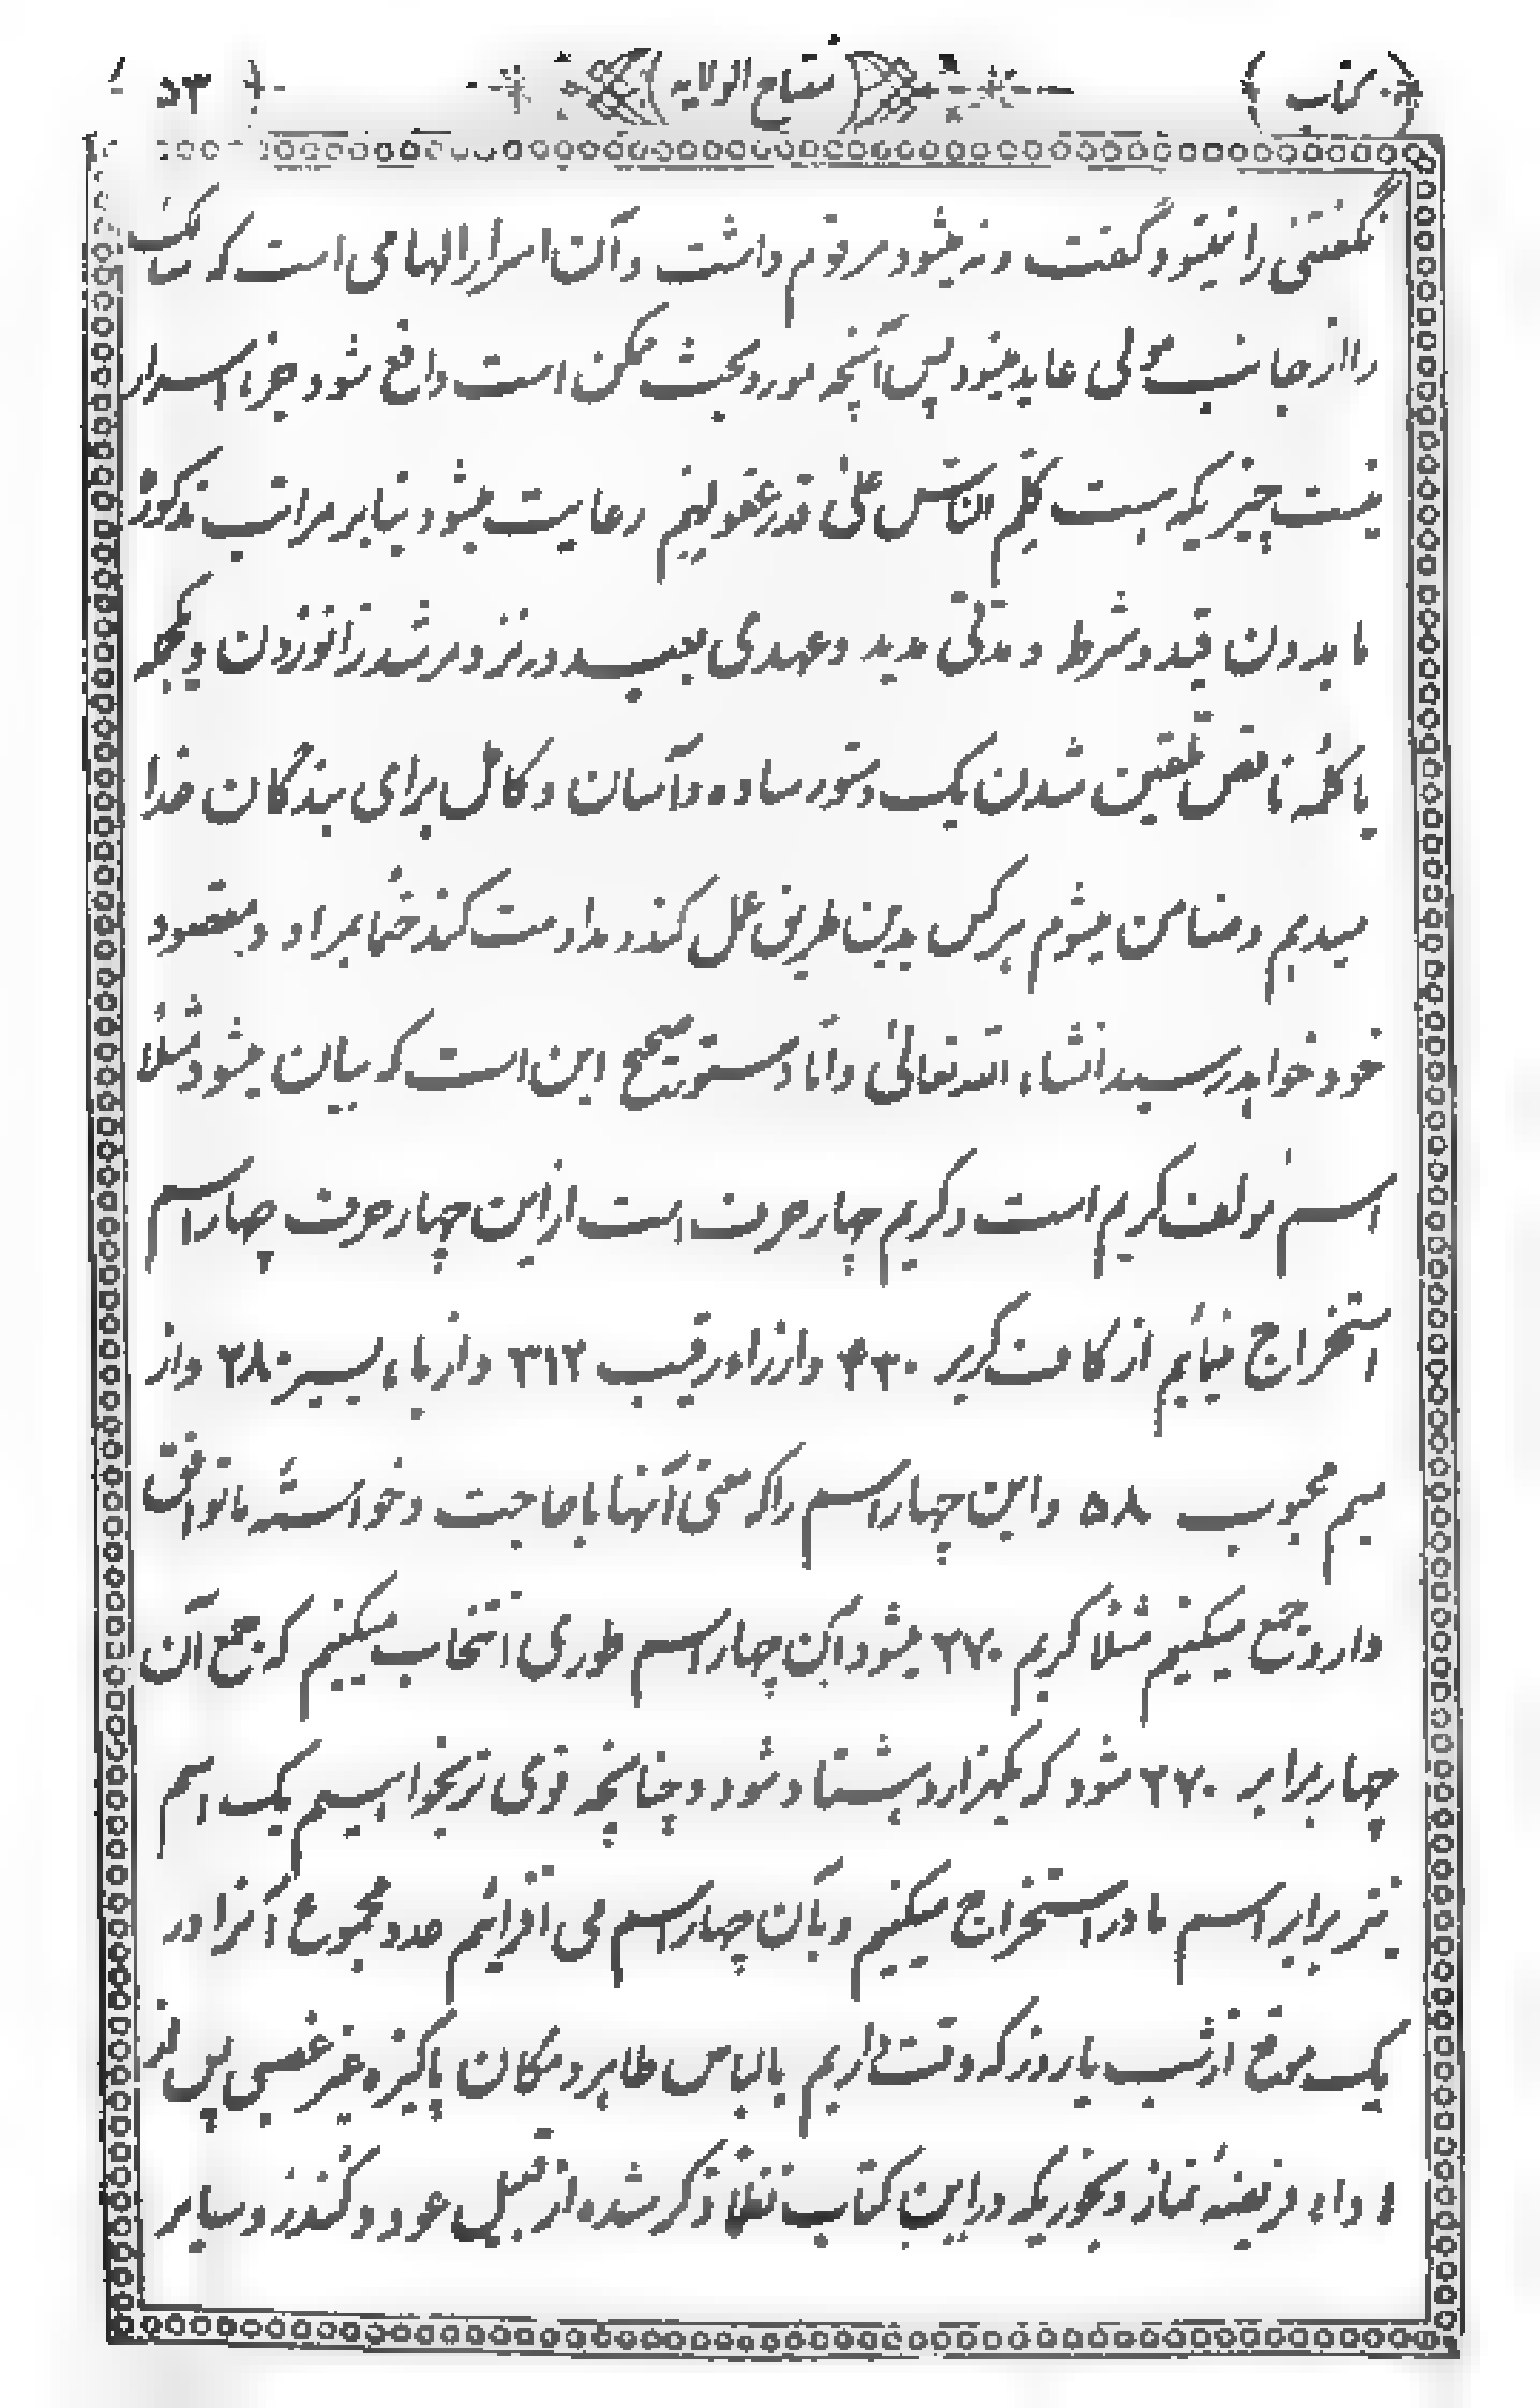 کتاب مفتاح الولایه ۵۳
نگفتنی را نمیشود گفت و نه میشود مرقوم داشت و آن اسرار الهامی است که سالک
را از جانب مولی عاید میشود پس آنچه مورد بحث ممکن است واقع شود جزء اسرار
نیست چیزیکه هست کلّم الناسَ علیٰ قدرِ عقولِهِم رعایت میشود بنابر مراتب مذکوره
ما بدون قید و شرط و مدتی مدید و عهدی بعید در نزد مرشد زانو زدن و بکجمله
یا کلمهٔ ناقص تلقین شدن یک دستور ساده و آسان و کامل برای بندگان خدا
میدهیم و ضامن میشوم هر کس بدین طریق عمل کند و مداومت کند حتماً بمراد و مقصود
خود خواهد رسید انشاء الله تعالیٰ و امّا دستور صحیح این است که بیان میشود مثلاً
اسم مولف کریم است و کریم چهار حرف است از این چهار حرف چهار اسم
استخراج مینمائیم از کاف کریر ۴۳۰ و از راء رقیب ۳۱۲ و از یاء یسیر ۲۸۰ و از
میم محبوب ۵۸ و این چهار اسم را که معنی آنها با حاجت و خواستهٔ ما توافق
دارد جمع میکنیم مثلاً کریم ۲۷۰ میشود آن چهار اسم طوری انتخاب میکنیم که جمع آن
چهار برابر ۲۷۰ شود که یکهزار و هشتاد شود و چنانچه قوی تر بخواهیم یک اسم
نیز برابر اسم مادر استخراج میکنیم و بآن چهار اسم می افزائیم عدد مجموع آنرا در
یک موقع از شب یا روز که وقت داریم با لباس طاهر و مکان پاکیزه غیر غصبی پس از
اداء فریضهٔ نماز و بخوریکه در این کتاب نظماً ذکر شده از قبیل عود و کُندر و سایر